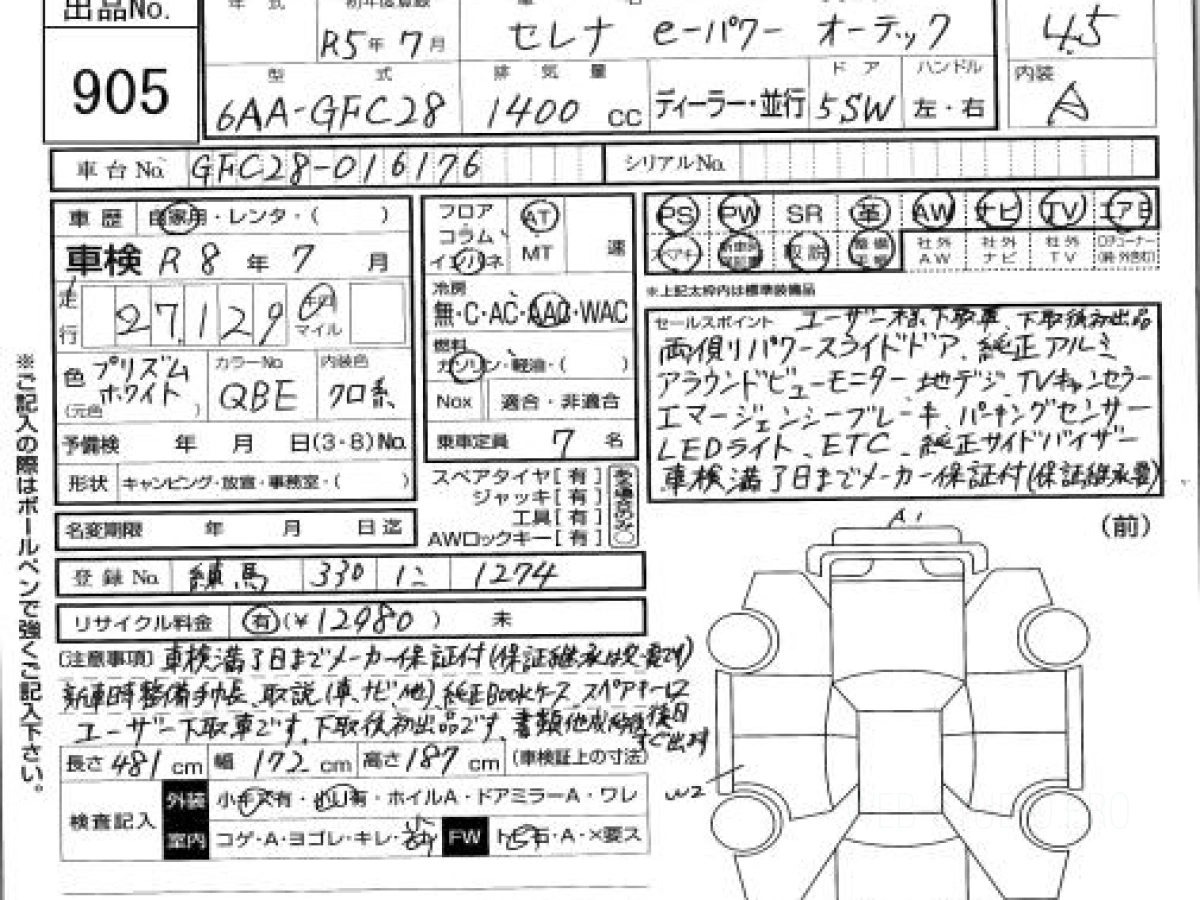 出品No.
905
年 式
初年度登録
R5年 7月
セレナ e-パワー オーテック
4.5
型 式
6AA-GFC28
排 気 量
1400 cc
ディーラー・並行
ドア
5SW
ハンドル
左・右
内装
A
車台No. GFC28-016176
シリアルNo.
車歴 自家用・レンタ・( )
車検 R8年 7月
走行 27,129 キロ マイル
色 プリズムホワイト
(元色 )
カラーNo
QBE
内装色
クロ系
予備検 年 月 日(3・8)No.
形状 キャンピング・放宣・事務室・( )
名変期限 年 月 日迄
フロア
コラム
インパネ
AT
MT
速
冷房
無・C・AC・AAC・WAC
燃料
ガソリン・軽油・( )
Nox 適合・非適合
乗車定員 7 名
スペアタイヤ[有]
ジャッキ[有]
工具[有]
AWロックキー[有]
ある場合のみ○
PS PW SR 革 AW ナビ TV エアB
スペアキー 新車時保証書 取説 整備手帳 社外AW 社外ナビ 社外TV
※上記太枠内は標準装備品
セールスポイント ユーザー様下取車、下取後初出品
両側パワースライドドア、純正アルミ
アラウンドビューモニター、地デジ、TVキャンセラー
エマージェンシーブレーキ、パーキングセンサー
LEDライト、ETC、純正サイドバイザー
車検満了日までメーカー保証付(保証継承要)
登録No. 練馬 330 1274
リサイクル料金 有(¥12980) 未
[注意事項] 車検満了日までメーカー保証付(保証継承は必要です)
新車時整備手帳、取説(車、ナビ、他)純正BOOKケース、スペアキー
ユーザー下取車です、下取後初出品です、書類他成約後後日
すぐ出ます
長さ 481 cm 幅 172 cm 高さ 187 cm (車検証上の寸法)
検査記入
外装 小キズ有・ホイルA・ドアミラーA・ワレ
室内 コゲ・A・ヨゴレ・キレ・
FW トビ石・A・×要ス
※ご記入の際はボールペンで強くご記入下さい。
A1
(前)
W2